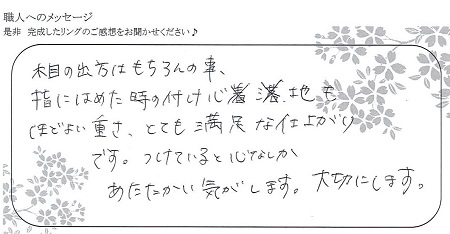 職人へのメッセージ
是非 完成したリングのご感想をお聞かせください♪
木目の出方はもちろんの事、
指にはめた時の付け心地も
ほどよい重さ、とても満足な仕上がり
です。つけていると心なしか
あたたかい気がします。大切にします。